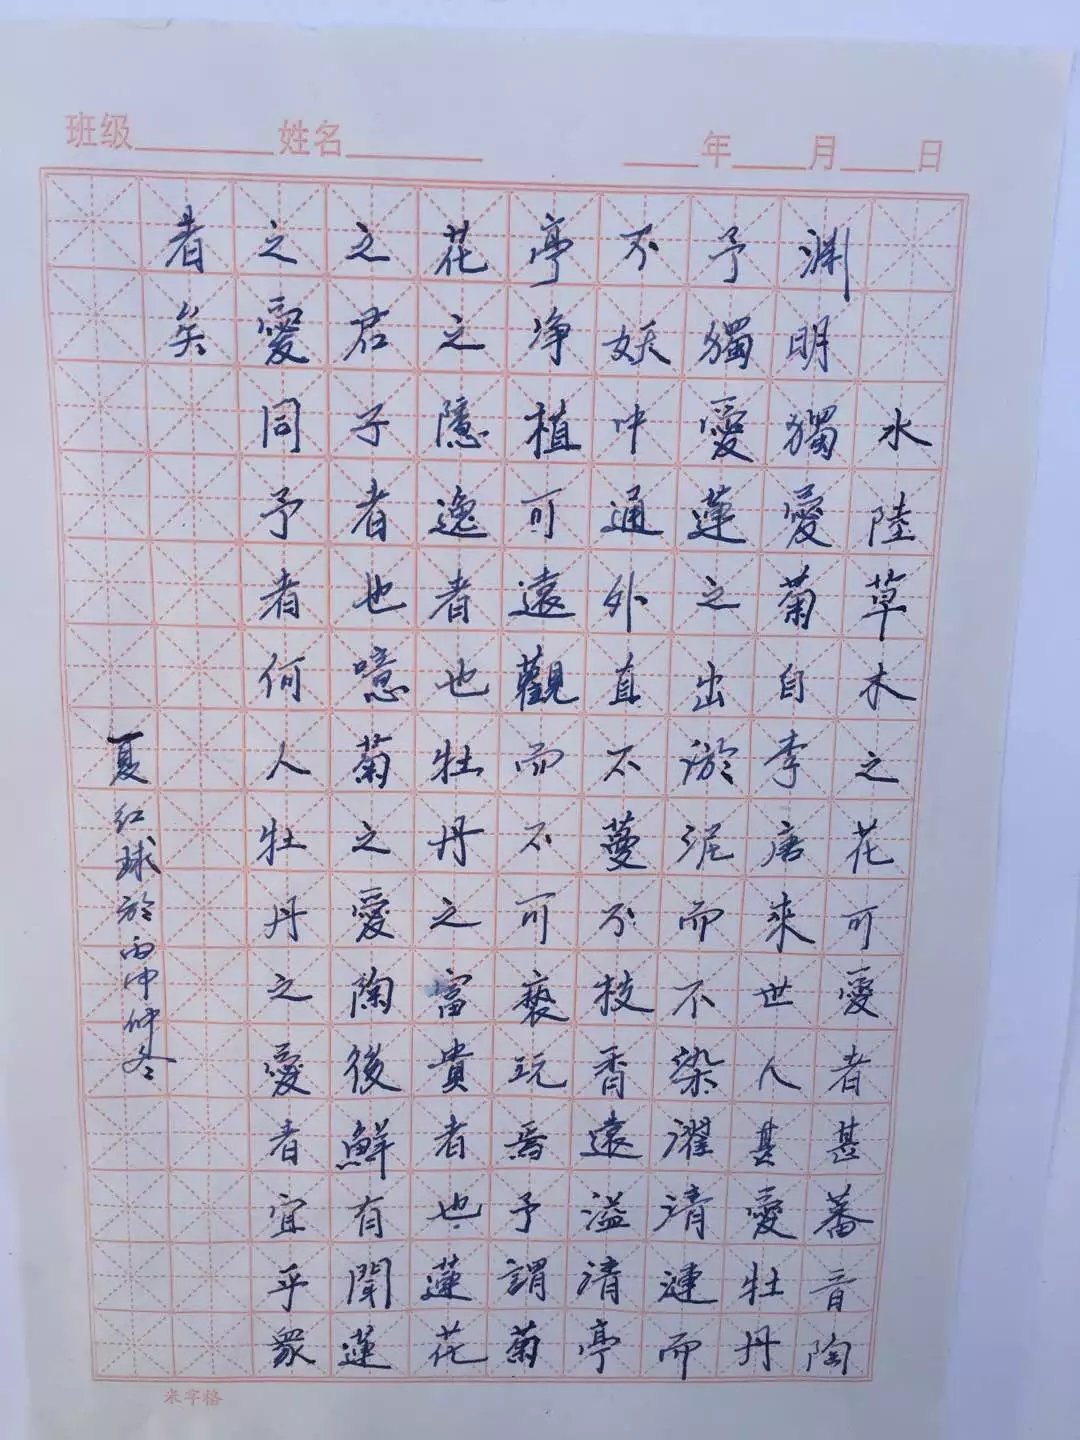 班级 姓名 年 月 日
水陸草木之花可愛者甚蕃音陶
淵明獨愛菊自李唐來世人甚愛牡丹
予獨愛蓮之出淤泥而不染濯清漣而
不妖中通外直不蔓不枝香遠溢清亭
亭净植可遠觀而不可褻玩焉予謂菊
花之隱逸者也牡丹之富貴者也蓮花
之君子者也噫菊之愛陶後鮮有聞蓮
之愛同予者何人牡丹之愛者宜乎衆
者矣
夏红球於丙申仲冬
米字格